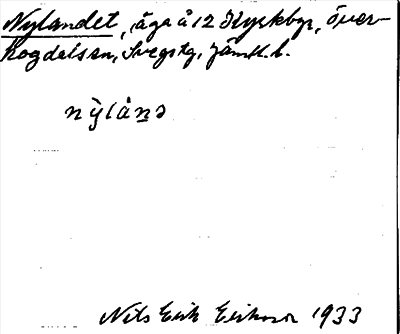 Nylandet, äga å 12 Styckbyn, Över-
hogdalssn, Svegstg, Jämtl. l.
nỳlånɔ
Nils Erik Eriksson 1933